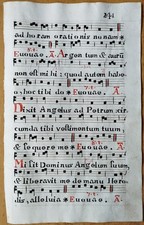 ad horam orationis nonam
Euouae. A. Argentum & auru
non est mihi: quod autem habe
o hoc tibi do Euouae. A.
Dixit Angelus ad Petrum cir
cunda tibi vestimentum tuum
& sequere me Euouae. A.
Misit Dominus Angelum suum
& liberavit me de manu Hero
dis, alleluia Euouae. A.